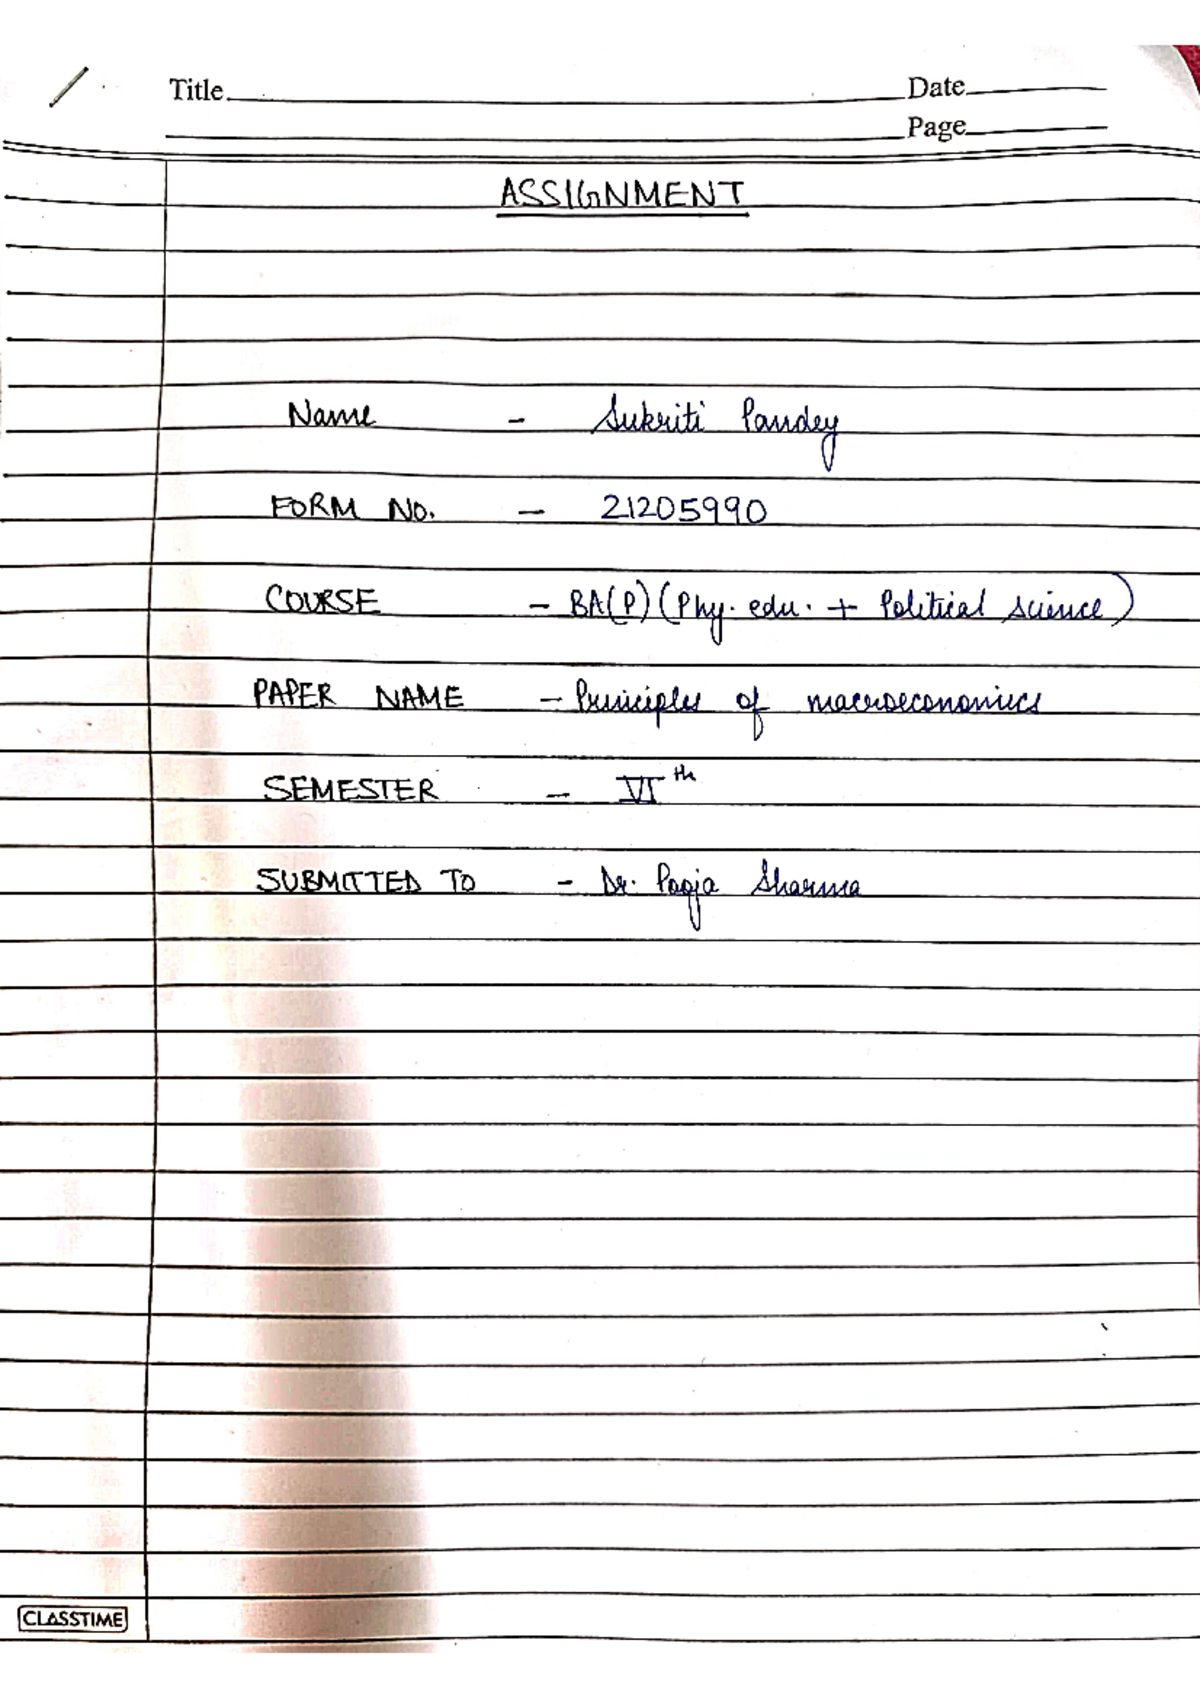 Title
Date
Page
ASSIGNMENT
Name - Sukriti Pandey
FORM NO. - 21205990
COURSE - BA(P) (Phy. edu. + Political science)
PAPER NAME - Principles of macroeconomics
SEMESTER - VIth
SUBMITTED TO - Dr. Pooja Sharma
CLASSTIME